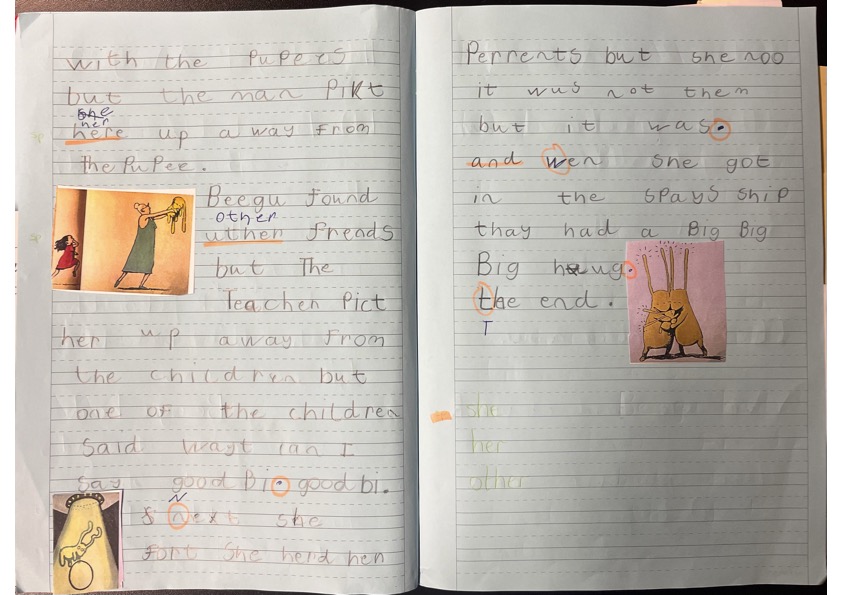 with the Pupees
but the man Pikt
she
her
here up a way from
the Pupee.
Beegu found
other
uther frends
but The
Teacher Pict
her up away from
the children but
one of the children
Said wayt can I
say good Bi. good bi.
N
& Next she
fort She herd her
Perrents but she noo
it wus not them
but it was.
and wen she got
in the spays ship
thay had a Big Big
Big hug.
the end.
T
she
her
other